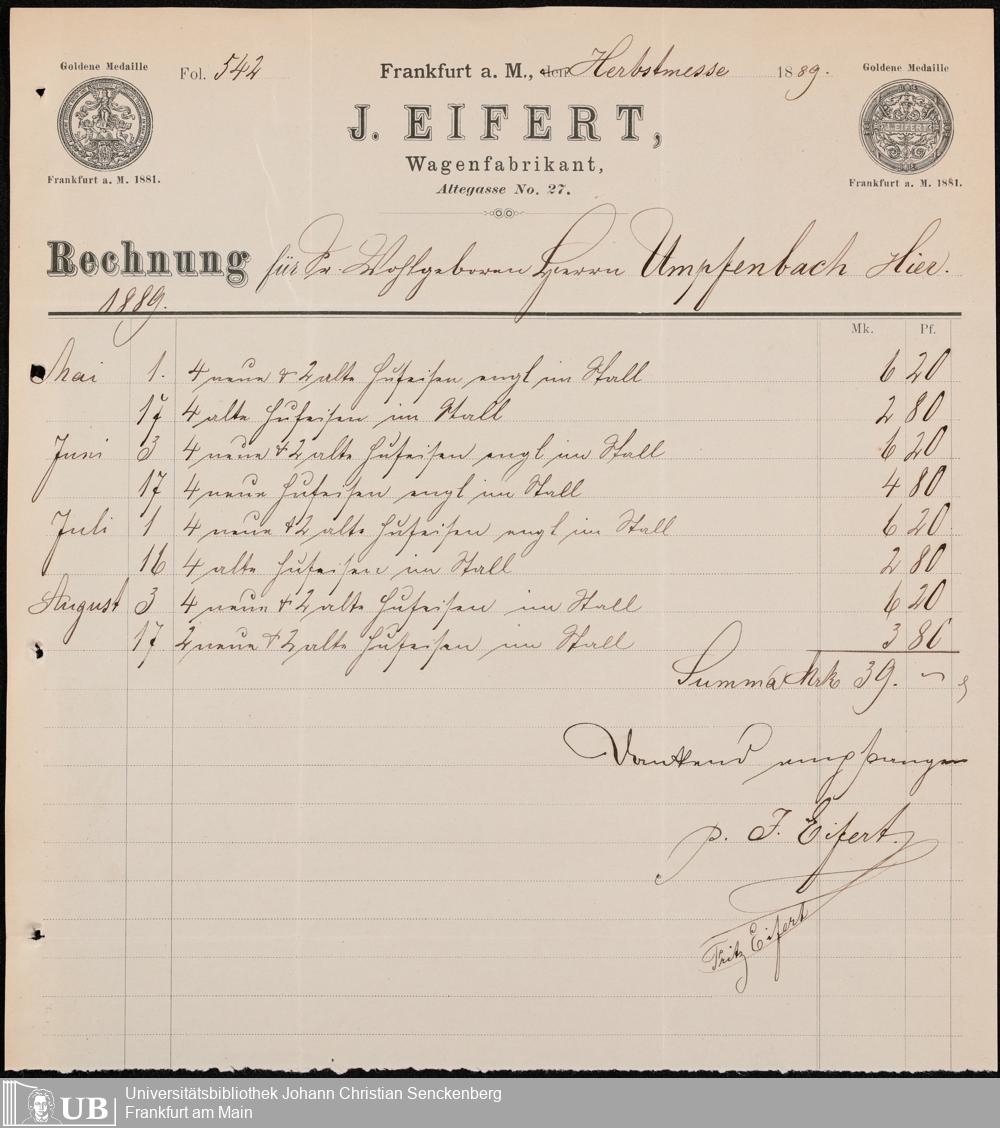 Goldene Medaille
Fol. 542
Frankfurt a. M., den Herbstmesse 1889.
Goldene Medaille
J. EIFERT,
J. EIFERT
Wagenfabrikant,
Frankfurt a. M. 1881.
Altegasse No. 27.
Frankfurt a. M. 1881.
Rechnung für Sr. Wohlgeboren Herrn Umpfenbach Hier.
1889.
Mk. Pf.
Mai 1. 4 neue & 2 alte Hufeisen engl im Stall 6 20
17 4 alte Hufeisen im Stall 2 80
Juni 3 4 neue & 2 alte Hufeisen engl im Stall 6 20
17 4 neue Hufeisen engl im Stall 4 80
Juli 1 4 neue & 2 alte Hufeisen engl im Stall 6 20
16 4 alte Hufeisen im Stall 2 80
August 3 4 neue & 2 alte Hufeisen im Stall 6 20
17 2 neue & 2 alte Hufeisen im Stall 3 80
Summa Mrk 39. —
Dankend empfangen
p. J. Eifert.
Fritz Eifert
UB
Universitätsbibliothek Johann Christian Senckenberg
Frankfurt am Main